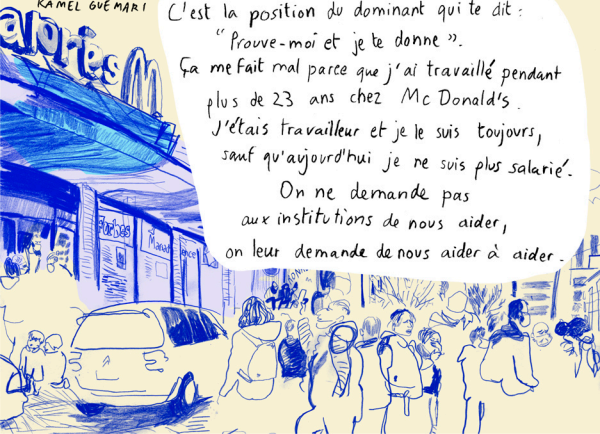 KAMEL GUÉMARI
C'est la position du dominant qui te dit :
"Prouve-moi et je te donne".
Ça me fait mal parce que j'ai travaillé pendant
plus de 23 ans chez McDonald's.
J'étais travailleur et je le suis toujours,
sauf qu'aujourd'hui je ne suis plus salarié.
On ne demande pas
aux institutions de nous aider,
on leur demande de nous aider à aider.
alories M
Forbes